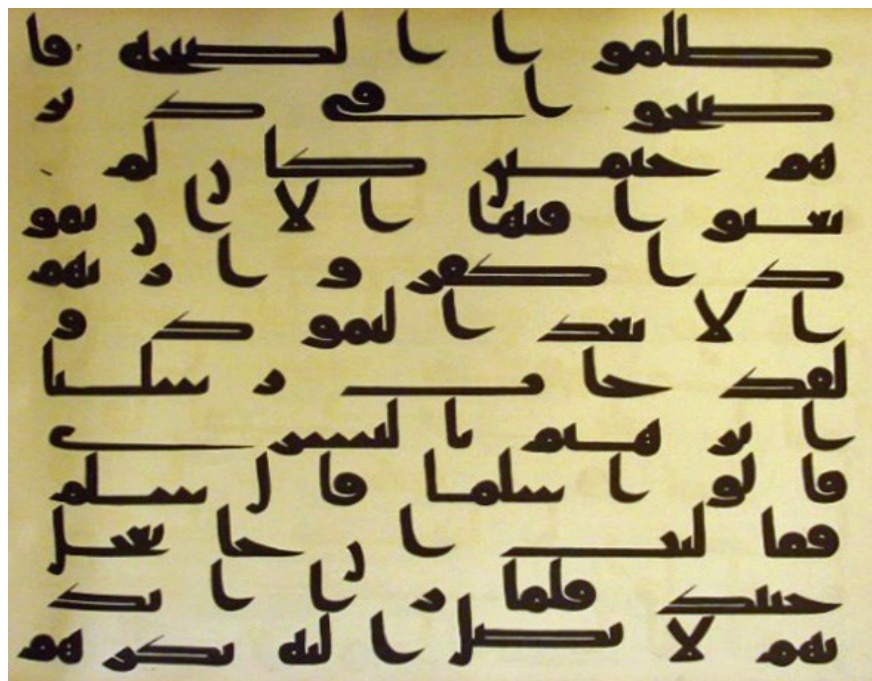 ظلموا الصيحه فا
صبحوا في دير
هم جثمين كان لم
يغنوا فيها الا ان ثمو
دا كفروا ربهم
الا بعدا لثمود و
لقد جات رسلنا
ابرهيم بالبشرى
قالوا سلما قال سلم
فما لبث ان جا بعجل
حنيذ فلما را ايد
يهم لا تصل اليه نكرهم